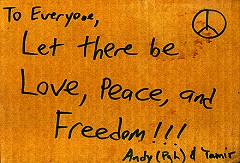 To Everyone,
Let there be
Love, Peace, and
Freedom!!!
Andy (Pgh) & Tamir